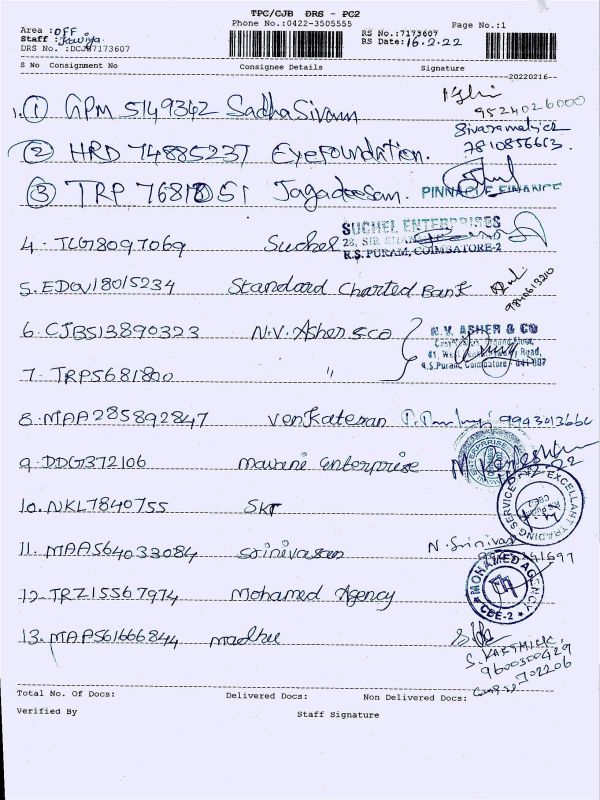 TPC/CJB DRS - PC2
Phone No.:0422-3505555
Page No.:1
Area : OFF
Staff : Kaviya
DRS No. :DCJB7173607
RS No.:7173607
RS Date: 16.2.22
S No Consignment No Consignee Details Signature
20220216
1. ① GPM 5149342 SadhaSivam
9524026000
② HRD 74885237 Eyefoundation.
7810856663.
③ TRP 7681 051 Jagadeesan. PINNACLE FINANCE
4. TLG18097069 Suchel SUCHEL ENTERPRISES
R.S. PURAM, COIMBATORE-2
5. EDOV18015234 Standard Charted Bank
9840613210
6. CJBS13890323 N.V. Asher & co N.V. ASHER & CO
7. TRP5681800 "
R.S.Puram, Coimbatore - 641 002
8. MAA285892847 Venkatesan
9. DDG1372106 Mavani Enterprise
10. NKL7840755 SKT
EXCELLANT TRADING SERVICE
11. MAA564033084 Srinivasan N. Srinivas
12. TRZ15567974 Mohamed Agency MOHAMED AGENCY
CBE-2
13. MAA561666844 Madhu
S. KARTHICK.
9600300429
702206
Total No. Of Docs: Delivered Docs: Non Delivered Docs:
Verified By Staff Signature